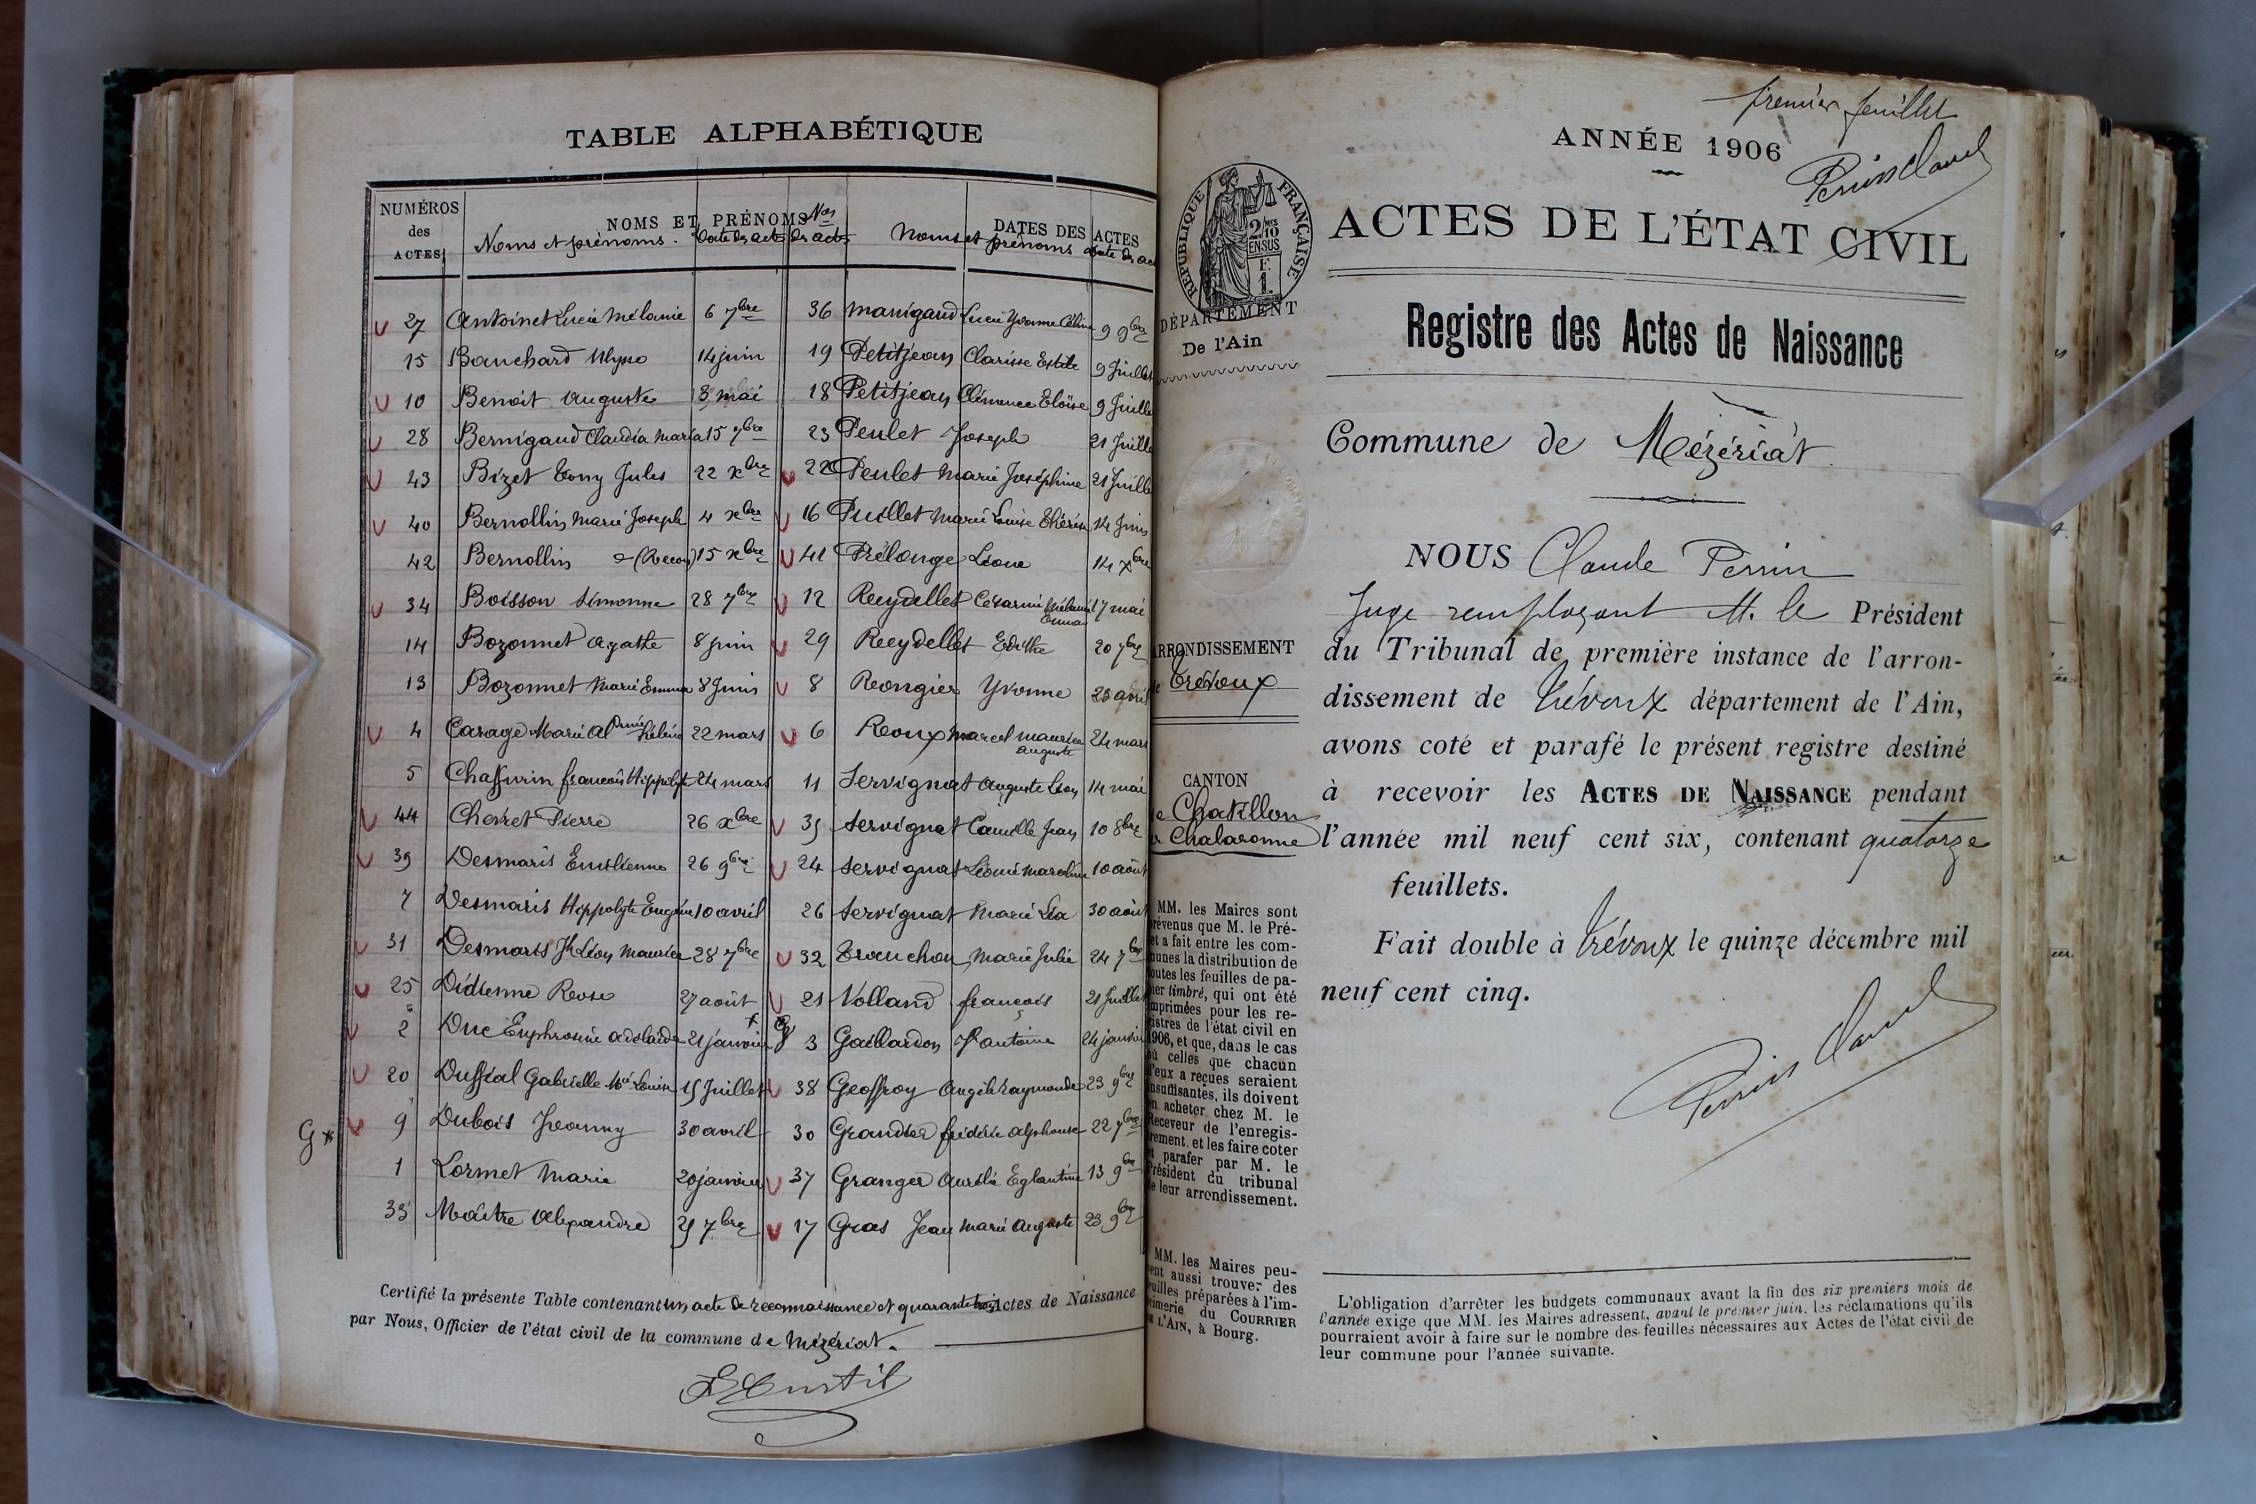 TABLE ALPHABÉTIQUE
NUMÉROS des ACTES
NOMS ET PRÉNOMS
DATES DES ACTES
Noms et prénoms. Date des actes Nos des actes Noms et prénoms date des ac
27 Antoinet Lucie Mélanie 6 7bre 36 Manigaud Lucie Yvonne Céline 9 9bre
15 Banchard Ulysse 14 juin 19 Petitjean Clarisse Estelle 9 Juillet
10 Benoit Auguste 8 mai 18 Petitjean Clémence Eloïse 9 Juille
28 Bernigaud Claudia Maria 15 7bre 23 Peulet Joseph 21 Juille
43 Bizet Tony Jules 22 xbre 22 Peulet Marie Joséphine 21 Juille
40 Bernollin Marie Joseph 4 xbre 16 Puillet Marie Louise Thérèse 14 Juin
42 Bernollin (Recon) 15 xbre 41 Prélonge Léone 14 xbre
34 Boisson Simonne 28 7bre 12 Reydellet Césarine Mélanie Emma 17 mai
14 Bozonnet Agathe 8 juin 29 Reydellet Edithe 20 7bre
13 Bozonnet Marie Emma 8 Juin 8 Rongier Yvonne 23 avril
4 Carage Marie Hélène 22 mars 6 Roux Marcel Maurice Auguste 24 mars
5 Chaffurin François Hippolyte 24 mars 11 Servignat Auguste Léon 14 mai
44 Chevret Pierre 26 xbre 35 Servignat Camille Jean 10 8bre
39 Desmaris Emilienne 26 9bre 24 Servignat Léonie Marceline 10 août
7 Desmaris Hippolyte Eugène 10 avril 26 Servignat Marie Léa 30 août
31 Desmaris Jh Léon Maurice 28 7bre 32 Tranchon Marie Julie 24 7bre
25 Didienne Rose 27 août 21 Volland François 21 Juillet
2 Duc Euphrosine Adélaïde 21 janvier 3 Gaillardon Antoine 24 janvier
20 Duffial Gabrielle Mie Louise 15 Juillet 38 Geoffroy Angèle Raymonde 23 9bre
G* 9 Dubois Jeanny 30 avril 30 Grandier Frédéric Alphonse 22 7bre
1 Lormet Marie 20 janvier 37 Granger Aurélie Eglantine 13 9bre
33 Maître Alexandre 25 7bre 17 Gras Jean Marie Auguste 23 9bre
Certifié la présente Table contenant un acte de reconnaissance et quarante trois Actes de Naissance
par Nous, Officier de l'état civil de la commune de Mézériat.
premier feuillet
ANNÉE 1906
Perrin Claude
RÉPUBLIQUE FRANÇAISE
2/10 EN SUS
1.
ACTES DE L'ÉTAT CIVIL
DÉPARTEMENT
De l'Ain
Registre des Actes de Naissance
Commune de Mézériat
NOUS Claude Perrin
Juge remplaçant M. le Président
du Tribunal de première instance de l'arron-
dissement de Trévoux département de l'Ain,
avons coté et parafé le présent registre destiné
à recevoir les ACTES DE NAISSANCE pendant
l'année mil neuf cent six, contenant quatorze
feuillets.
Fait double à Trévoux le quinze décembre mil
neuf cent cinq.
Perrin Claude
ARRONDISSEMENT
Trévoux
CANTON
de Chatillon
Chalaronne
MM. les Maires sont
prévenus que M. le Pré-
et a fait entre les com-
munes la distribution de
toutes les feuilles de pa-
pier timbré, qui ont été
imprimées pour les re-
gistres de l'état civil en
1906, et que, dans le cas
où celles que chacun
d'eux a reçues seraient
insuffisantes, ils doivent
en acheter chez M. le
Receveur de l'enregis-
trement, et les faire coter
et parafer par M. le
Président du tribunal
de leur arrondissement.
MM. les Maires peu-
vent aussi trouver des
feuilles préparées à l'im-
primerie du COURRIER
DE L'AIN, à Bourg.
L'obligation d'arrêter les budgets communaux avant la fin des six premiers mois de
l'année exige que MM. les Maires adressent, avant le premier juin, les réclamations qu'ils
pourraient avoir à faire sur le nombre des feuilles nécessaires aux Actes de l'état civil de
leur commune pour l'année suivante.